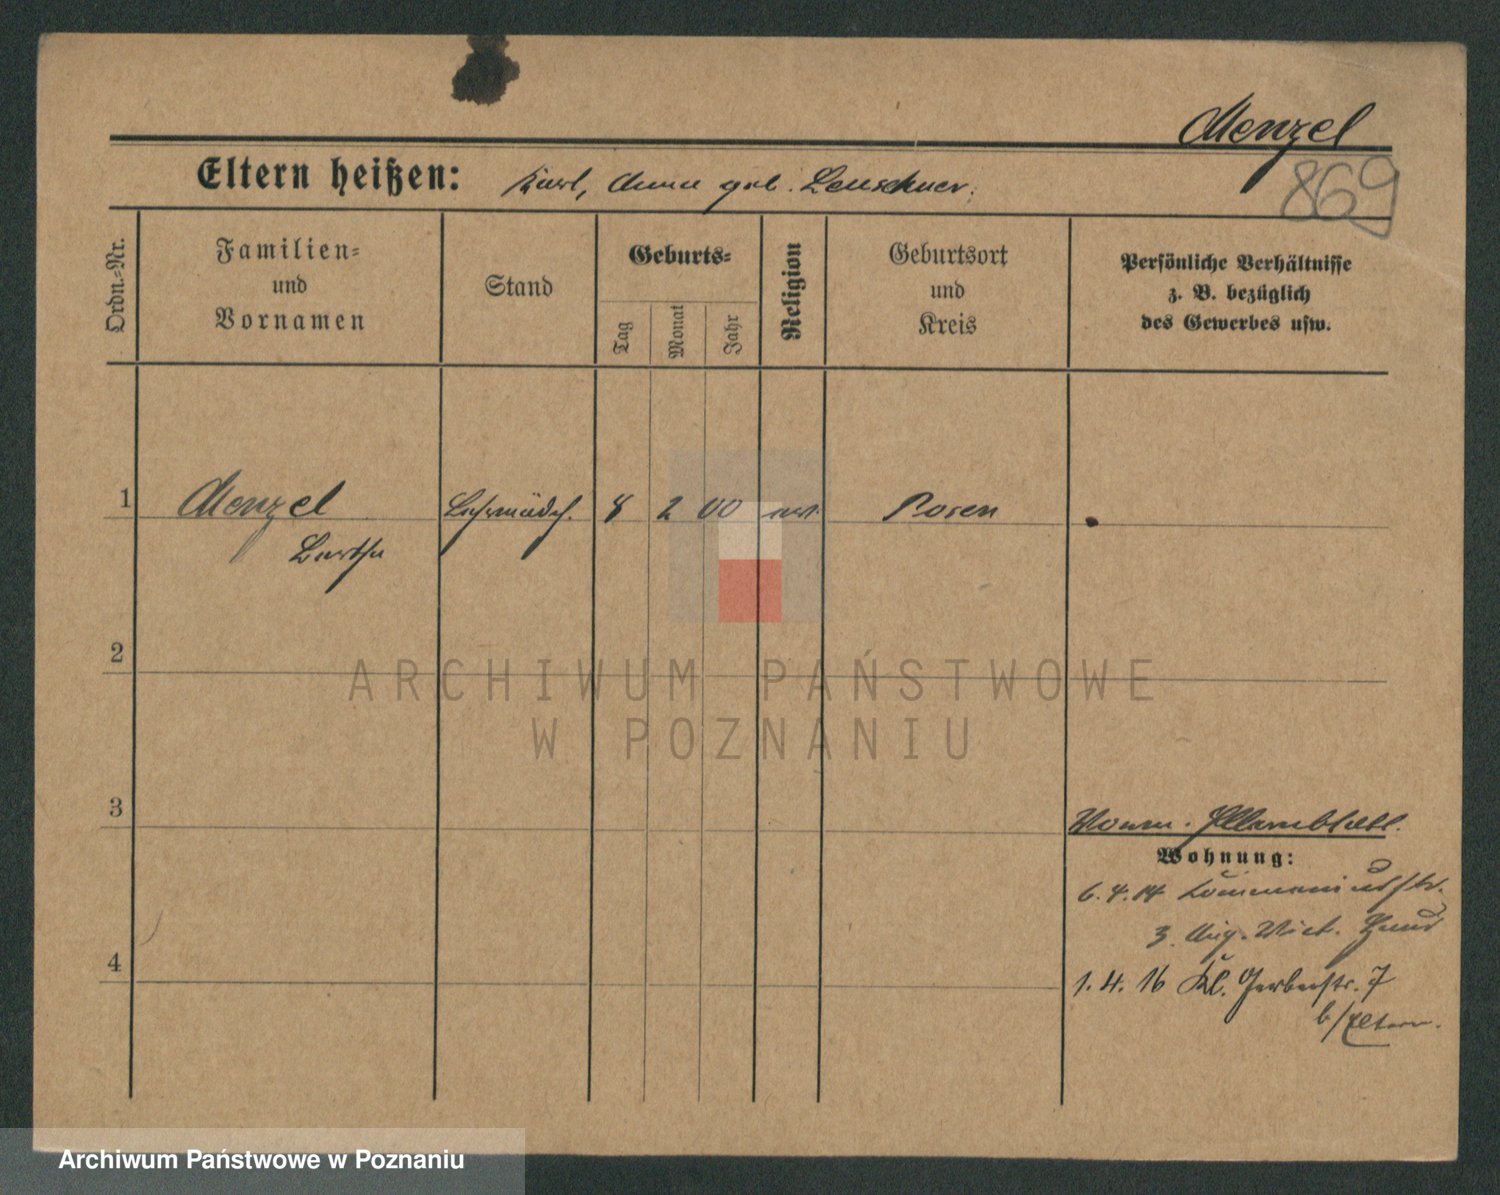 Menzel
869
Eltern heißen: Karl, Anna geb. Leuschner.
Ordn.-Nr.
Familien-
und
Vornamen
Stand
Geburts-
Tag
Monat
Jahr
Religion
Geburtsort
und
Kreis
Persönliche Verhältnisse
z. B. bezüglich
des Gewerbes usw.
1 Menzel Lehrmädch. 8 2 00 Posen
Bertha
2
ARCHIWUM PAŃSTWOWE
W POZNANIU
3
Wohnung:
6.4.14
3. Aug. Vict.
4
1.4.16 Kl. Gerberstr. 7
b/Eltern.
Archiwum Państwowe w Poznaniu